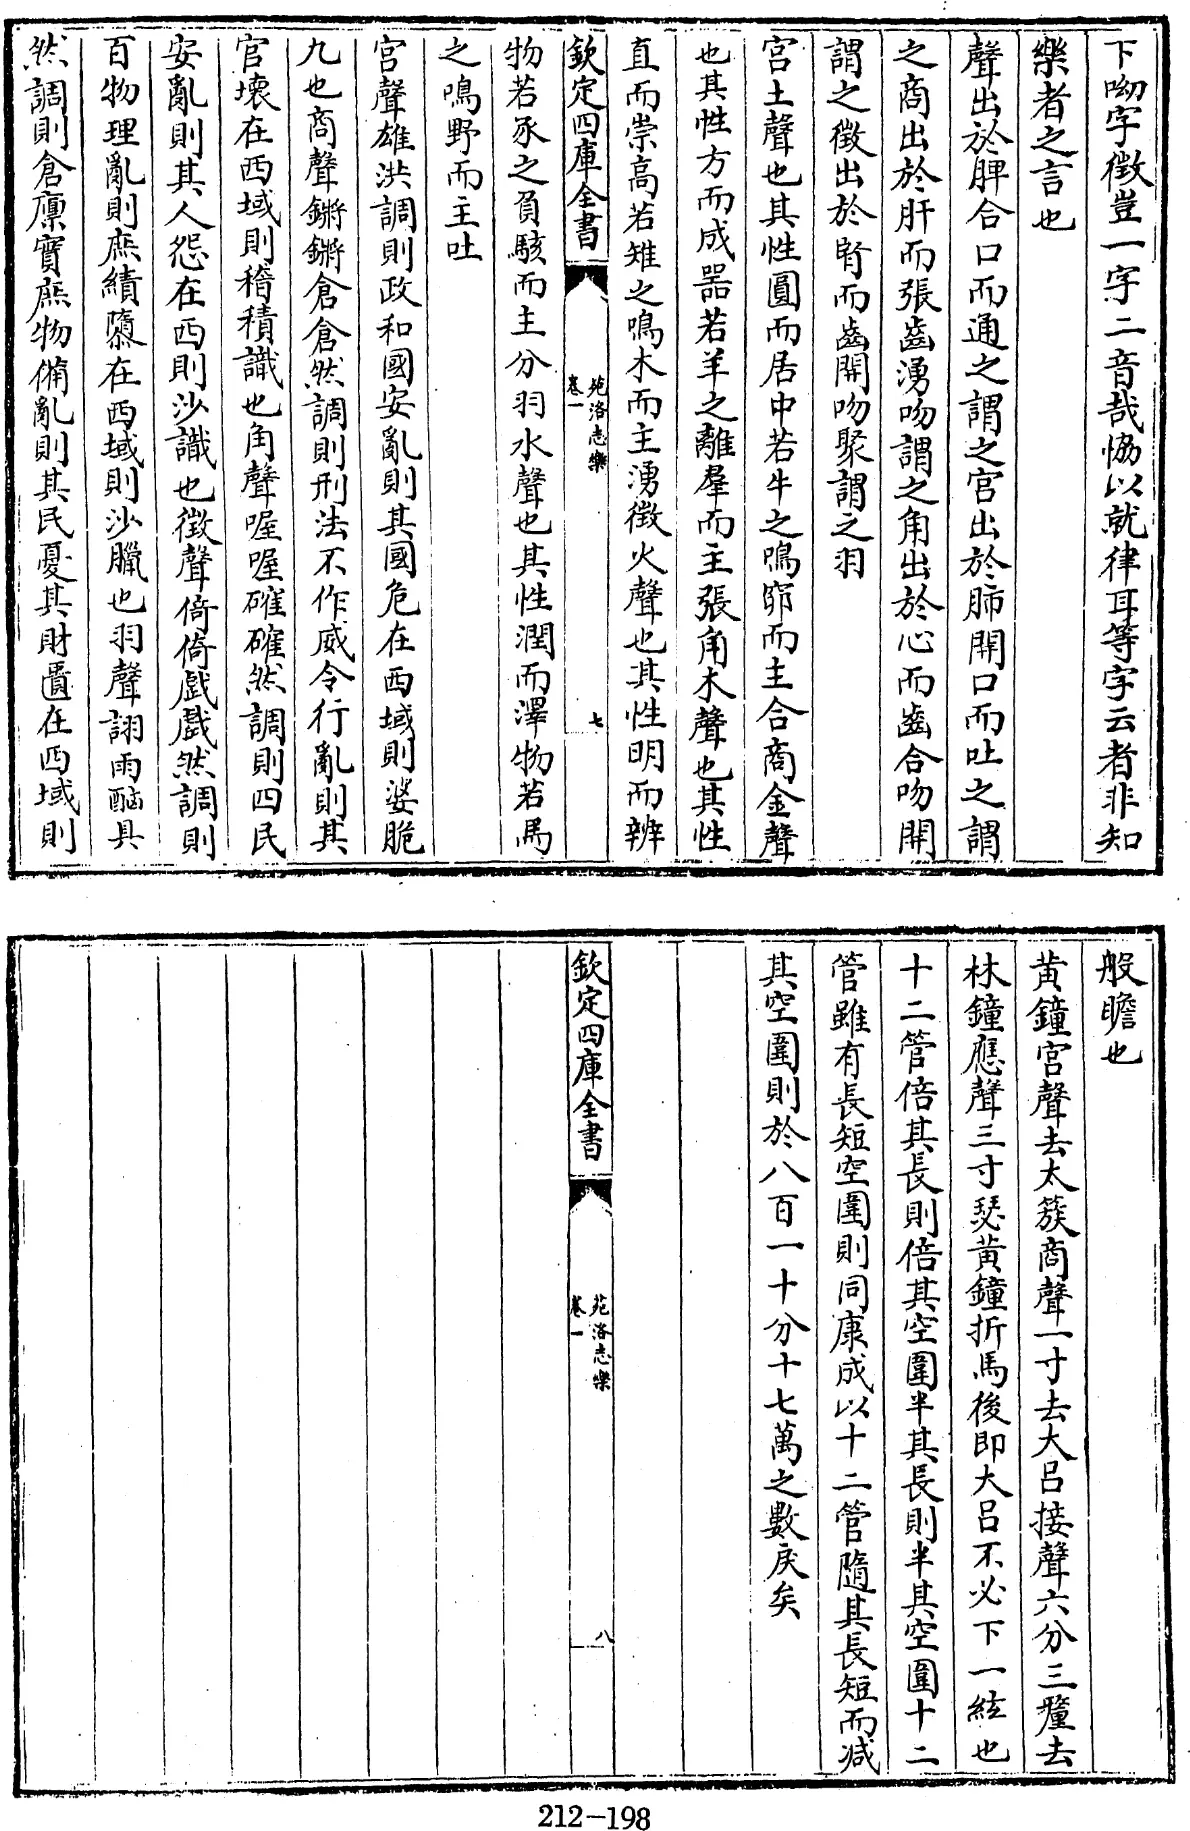 下呦字徵豈一字二音哉恊以就律耳等字云者非知
樂者之言也
聲出於脾合口而通之謂之宫出於肺開口而吐之謂
之商出於肝而張齒湧吻謂之角出於心而齒合吻開
謂之徵出於腎而齒開吻聚謂之羽
宫土聲也其性圓而居中若牛之鳴窌而主合商金聲
也其性方而成器若羊之離羣而主張角木聲也其性
直而崇高若雉之鳴木而主湧徵火聲也其性明而辨
欽定四庫全書
苑洛志樂
卷一
七
物若豕之負駭而主分羽水聲也其性潤而澤物若馬
之鳴野而主吐
宫聲雄洪調則政和國安亂則其國危在西域則婆脆
九也商聲鏘鏘倉倉然調則刑法不作威令行亂則其
官壞在西域則稽積識也角聲喔喔確確然調則四民
安亂則其人怨在西則沙識也徵聲倚倚戲戲然調則
百物理亂則庶績隳在西域則沙臘也羽聲詡雨酗具
然調則倉廪實庶物備亂則其民憂其財匱在西域則
般瞻也
黄鐘宫聲去太簇商聲一寸去大吕接聲六分三釐去
林鐘應聲三寸瑟黄鐘折馬後即大吕不必下一絃也
十二管倍其長則倍其空圍半其長則半其空圍十二
管雖有長短空圍則同康成以十二管隨其長短而减
其空圍則於八百一十分十七萬之數戾矣
欽定四庫全書
苑洛志樂
卷一
八
212-198